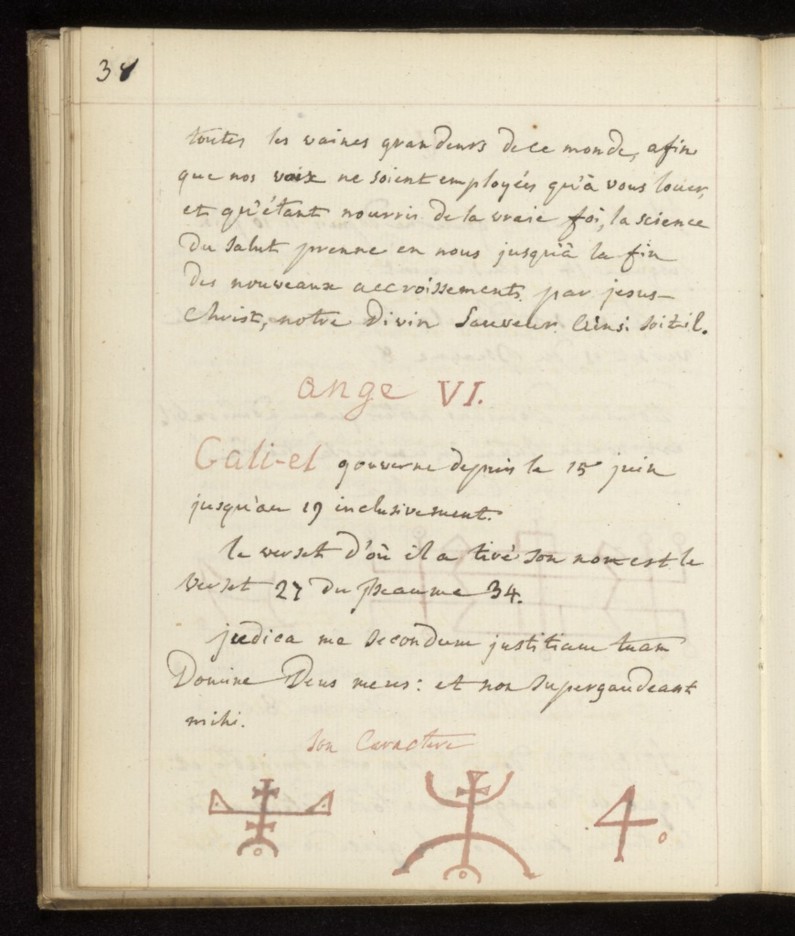 34
toutes les vaines grandeurs de ce monde, afin
que nos voix ne soient employées qu'à vous louer,
et qu'étant nourris de la vraie foi, la science
du salut prenne en nous jusqu'à la fin
des nouveaux accroissements par jesus-
Christ, notre Divin Sauveur. Ainsi soit-il.
ange VI.
Cali-el gouverne depuis le 15 juin
jusqu'au 19 inclusivement.
le verset d'où il a tiré son nom est le
verset 27 du pseaume 34.
judica me secondum justitiam tuam
Domine Deus meus: et non supergaudeant
mihi.
son Caractere
4.